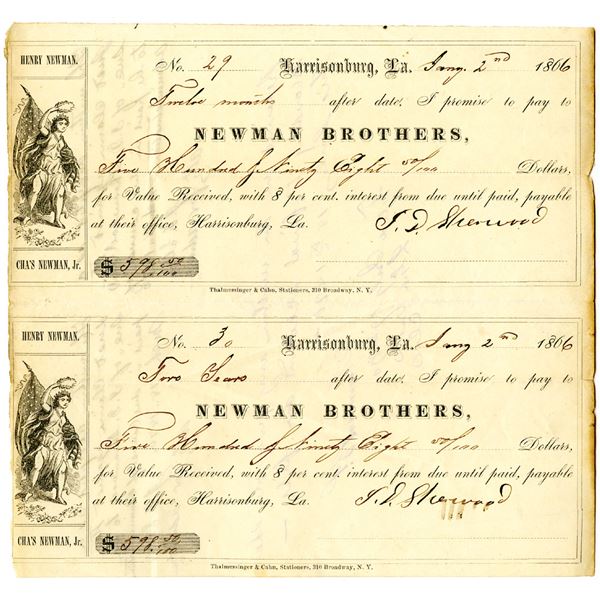 HENRY NEWMAN.
No. 29 Harrisonburg, La. Jany. 2nd 1866
Twelve months after date, I promise to pay to
NEWMAN BROTHERS,
Five Hundred & Ninety Eight 50/100 Dollars,
for Value Received, with 8 per cent. interest from due until paid, payable
at their office, Harrisonburg, La. J. D. Sherwood
CHA'S NEWMAN, Jr.
$ 598.50/100
Thalmessinger & Cahn, Stationers, 310 Broadway, N. Y.
HENRY NEWMAN.
No. 30 Harrisonburg, La. Jany 2nd 1866
Two Years after date, I promise to pay to
NEWMAN BROTHERS,
Five Hundred & Ninety Eight 50/100 Dollars,
for Value Received, with 8 per cent. interest from due until paid, payable
at their office, Harrisonburg, La. J. D. Sherwood
CHA'S NEWMAN, Jr.
$ 598.50/100
Thalmessinger & Cahn, Stationers, 310 Broadway, N. Y.